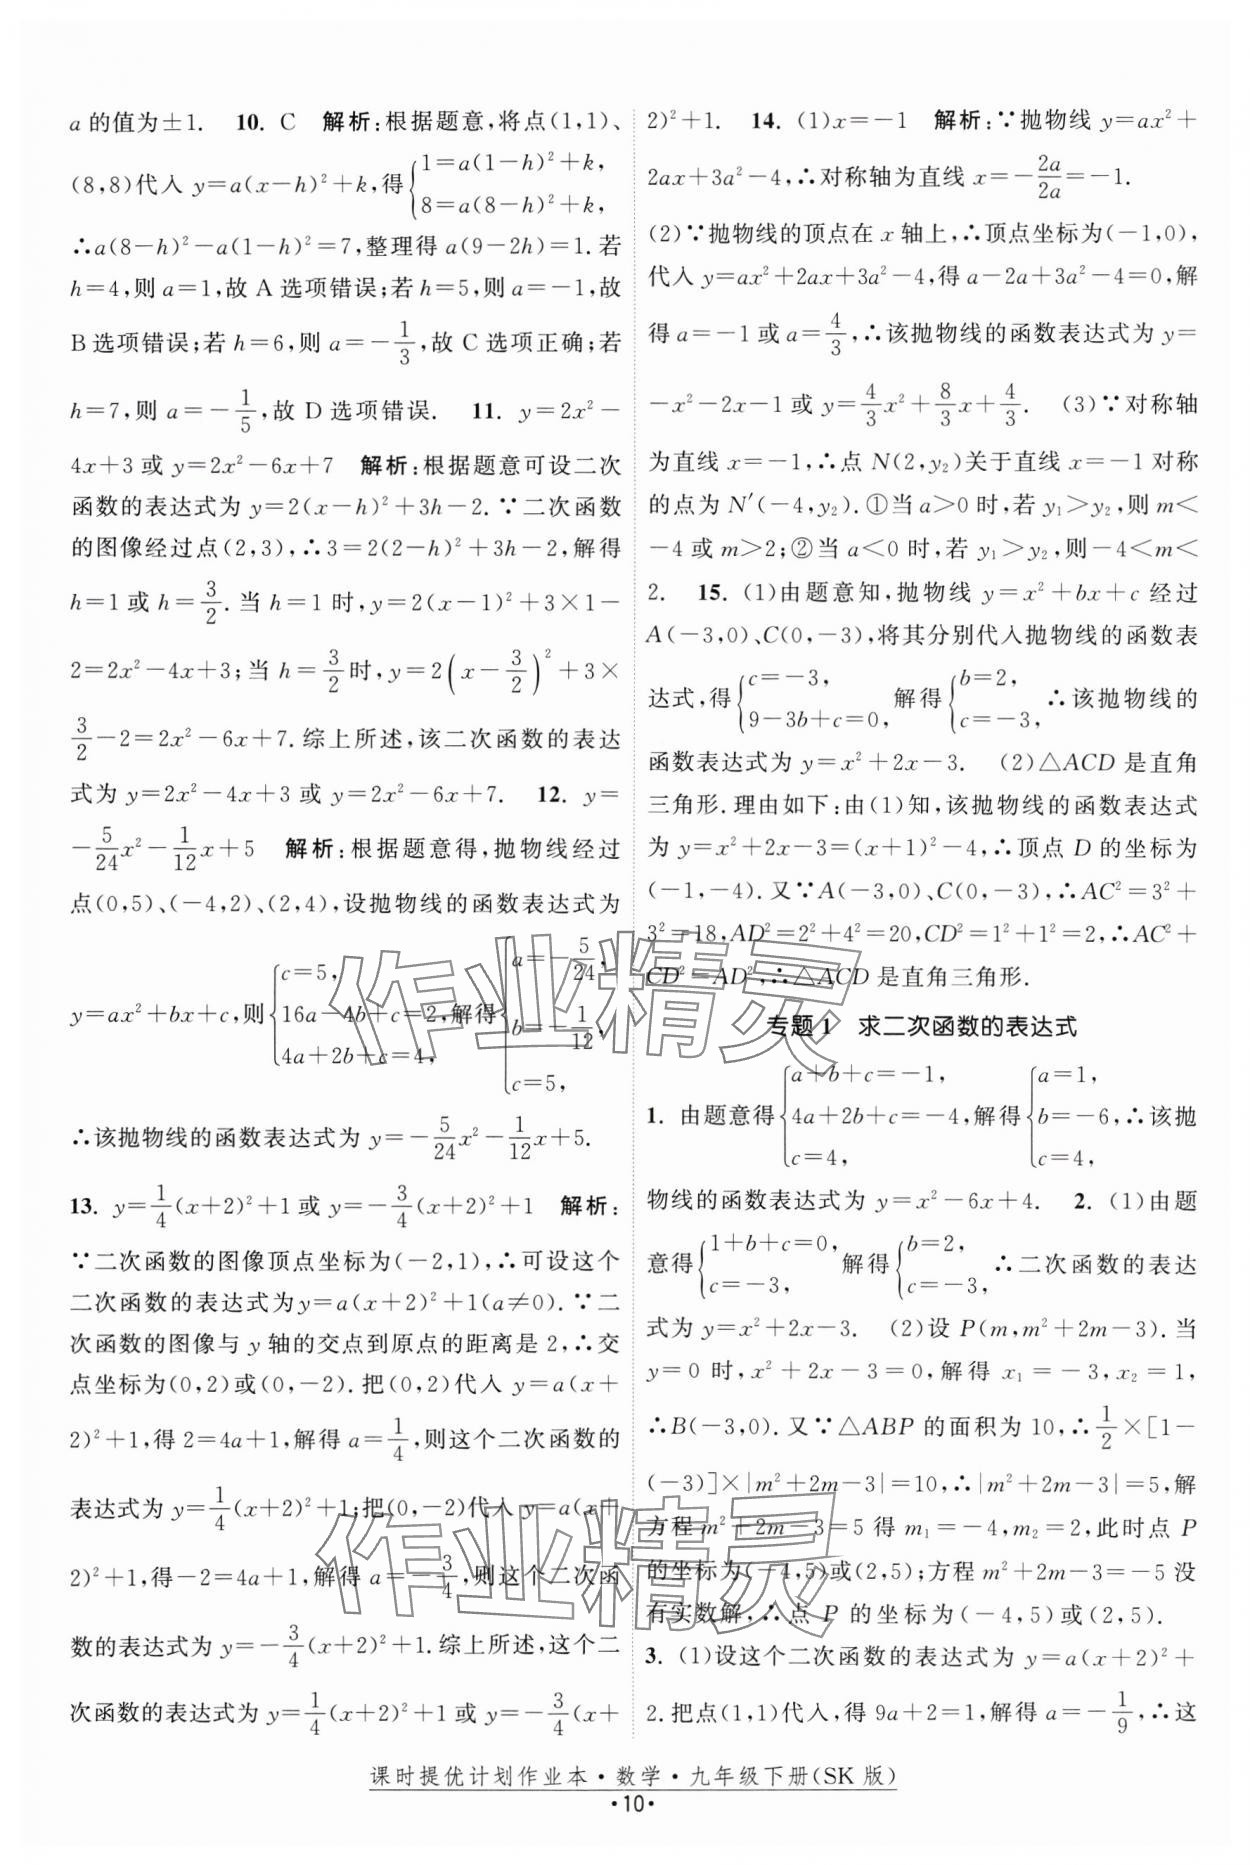 a的值为±1.　10. C　解析:根据题意,将点(1,1)、
(8,8)代入 y=a(x-h)²+k,得{1=a(1-h)²+k, 8=a(8-h)²+k,
∴a(8-h)²-a(1-h)²=7,整理得 a(9-2h)=1.若
h=4,则 a=1,故 A 选项错误;若 h=5,则 a=-1,故
B 选项错误;若 h=6,则 a=-1/3,故 C 选项正确;若
h=7,则 a=-1/5,故 D 选项错误.　11. y=2x²-
4x+3 或 y=2x²-6x+7　解析:根据题意可设二次
函数的表达式为 y=2(x-h)²+3h-2.∵二次函数
的图像经过点(2,3),∴3=2(2-h)²+3h-2,解得
h=1 或 h=3/2.当 h=1 时,y=2(x-1)²+3×1-
2=2x²-4x+3;当 h=3/2时,y=2(x-3/2)²+3×
3/2-2=2x²-6x+7.综上所述,该二次函数的表达
式为 y=2x²-4x+3 或 y=2x²-6x+7.　12. y=
-5/24x²-1/12x+5　解析:根据题意得,抛物线经过
点(0,5)、(-4,2)、(2,4),设抛物线的函数表达式为
y=ax²+bx+c,则{c=5, 16a-4b+c=2, 4a+2b+c=4, 解得{a=-5/24, b=-1/12, c=5,
∴该抛物线的函数表达式为 y=-5/24x²-1/12x+5.
13. y=1/4(x+2)²+1 或 y=-3/4(x+2)²+1　解析:
∵二次函数的图像顶点坐标为(-2,1),∴可设这个
二次函数的表达式为y=a(x+2)²+1(a≠0).∵二
次函数的图像与 y 轴的交点到原点的距离是 2,∴交
点坐标为(0,2)或(0,-2).把(0,2)代入 y=a(x+
2)²+1,得 2=4a+1,解得 a=1/4,则这个二次函数的
表达式为 y=1/4(x+2)²+1;把(0,-2)代入 y=a(x+
2)²+1,得-2=4a+1,解得 a=-3/4,则这个二次函
数的表达式为 y=-3/4(x+2)²+1.综上所述,这个二
次函数的表达式为 y=1/4(x+2)²+1 或 y=-3/4(x+
2)²+1.　14. (1)x=-1　解析:∵抛物线 y=ax²+
2ax+3a²-4,∴对称轴为直线 x=-2a/2a=-1.
(2)∵抛物线的顶点在 x 轴上,∴顶点坐标为(-1,0),
代入 y=ax²+2ax+3a²-4,得 a-2a+3a²-4=0,解
得 a=-1 或 a=4/3,∴该抛物线的函数表达式为 y=
-x²-2x-1 或 y=4/3x²+8/3x+4/3.　(3)∵对称轴
为直线 x=-1,∴点 N(2,y₂)关于直线 x=-1 对称
的点为 N′(-4,y₂).①当 a>0 时,若 y₁>y₂,则 m<
-4 或 m>2;②当 a<0 时,若 y₁>y₂,则-4<m<
2.　15. (1)由题意知,抛物线 y=x²+bx+c 经过
A(-3,0)、C(0,-3),将其分别代入抛物线的函数表
达式,得{c=-3, 9-3b+c=0, 解得{b=2, c=-3, ∴该抛物线的
函数表达式为 y=x²+2x-3.　(2)△ACD 是直角
三角形.理由如下:由(1)知,该抛物线的函数表达式
为 y=x²+2x-3=(x+1)²-4,∴顶点 D 的坐标为
(-1,-4).又∵A(-3,0)、C(0,-3),∴AC²=3²+
3²=18,AD²=2²+4²=20,CD²=1²+1²=2,∴AC²+
CD²=AD²,∴△ACD 是直角三角形.
专题 1　求二次函数的表达式
1. 由题意得{a+b+c=-1, 4a+2b+c=-4, c=4, 解得{a=1, b=-6, c=4, ∴该抛
物线的函数表达式为 y=x²-6x+4.　2. (1)由题
意得{1+b+c=0, c=-3, 解得{b=2, c=-3, ∴二次函数的表达
式为 y=x²+2x-3.　(2)设 P(m,m²+2m-3).当
y=0 时,x²+2x-3=0,解得 x₁=-3,x₂=1,
∴B(-3,0).又∵△ABP 的面积为 10,∴1/2×[1-
(-3)]×|m²+2m-3|=10,∴|m²+2m-3|=5,解
方程 m²+2m-3=5 得 m₁=-4,m₂=2,此时点 P
的坐标为(-4,5)或(2,5);方程 m²+2m-3=-5 没
有实数解,∴点 P 的坐标为(-4,5)或(2,5).
3. (1)设这个二次函数的表达式为 y=a(x+2)²+
2.把点(1,1)代入,得 9a+2=1,解得 a=-1/9,∴这
作业精灵
作业精灵
课时提优计划作业本·数学·九年级下册(SK 版)
·10·